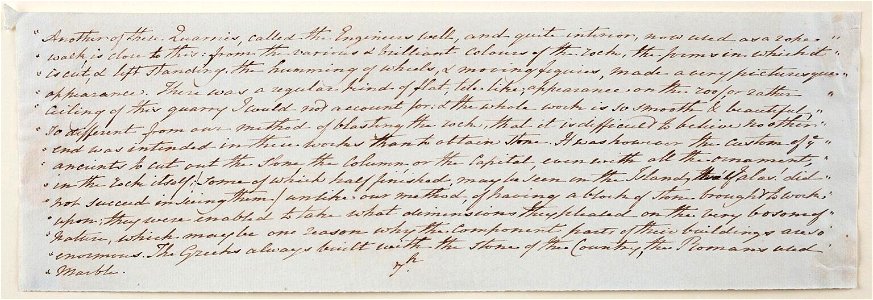 " Another of these Quarries, called the Engineers well, and quite interior, now used as a rope- "
" walk is close to this: from the various & brilliant colours of the rock, the forms in which it "
" is cut, & left standing, the humming of wheels, & moving figures, made a very picturesque "
" appearance. There was a regular kind of flat, tile like, appearance on the roof or rather "
" Ceiling of this quarry I could not account for: & the whole work is so smooth & beautiful, "
" so different from our method of blasting the rock, that it is difficult to believe no other "
" end was intended in these works than to obtain Stone. It was however the custom of ye "
" ancients to cut out the Stone the Column or the Capital, even with all the ornaments, "
" in the rock itself; (some of which half finished, may be seen in the Island, tho' I alas. did "
" not succeed in seeing them) unlike our method, of having a block of Stone brought to work "
" upon; they were enabled to take what dimensions they pleased on the very bosom of "
" Nature, which may be one reason why the component parts of their buildings are so "
" enormous. The Greeks always built with the Stone of the Country, the Romans used "
" Marble.